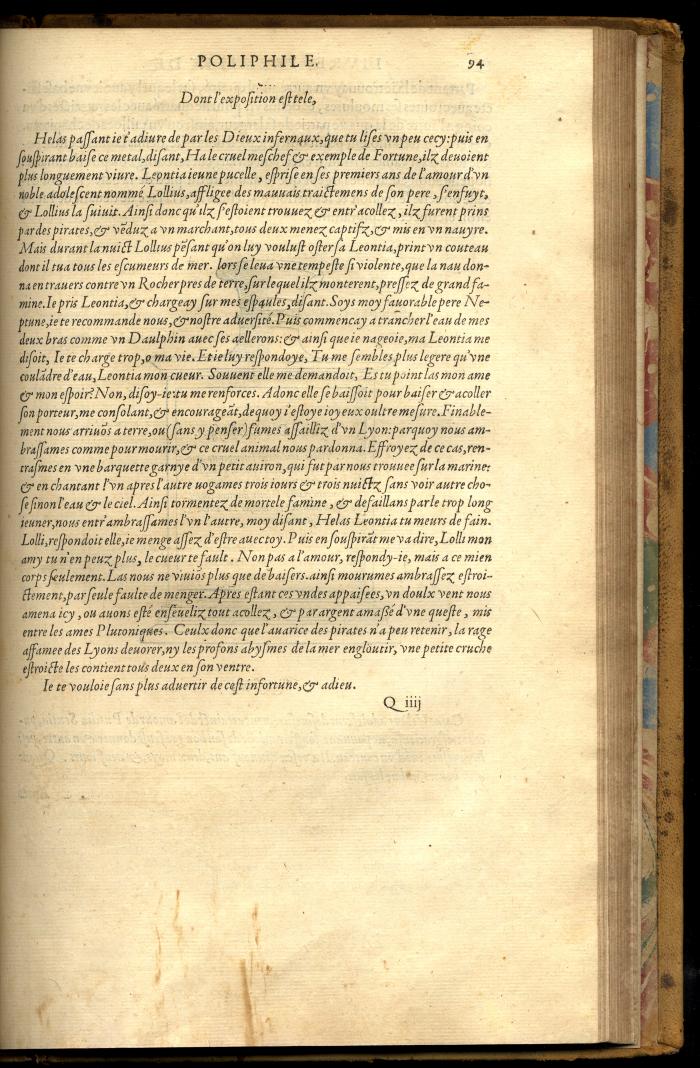 POLIPHILE. 94
Dont l'exposition est tele,
Helas passant ie t'adiure de par les Dieux infernaux, que tu lises vn peu cecy: puis en
souspirant baise ce metal, disant, Ha le cruel meschef & exemple de Fortune, ilz deuoient
plus longuement viure. Leontia ieune pucelle, esprise en ses premiers ans de l'amour d'vn
noble adolescent nommé Lollius, affligee des mauuais traictemens de son pere, s'enfuyt,
& Lollius la suiuit. Ainsi donc qu'ilz s'estoient trouuez & entr'acollez, ilz furent prins
par des pirates, & vēduz a vn marchant, tous deux menez captifz, & mis en vn nauyre.
Mais durant la nuict Lollius pēsant qu'on luy voulust oster sa Leontia, print vn couteau
dont il tua tous les escumeurs de mer. lors se leua vne tempeste si violente, que la nau don-
na en trauers contre vn Rocher pres de terre, sur lequel ilz monterent, pressez de grand fa-
mine. Ie pris Leontia, & chargeay sur mes espaules, disant. Soys moy fauorable pere Ne-
ptune, ie te recommande nous, & nostre aduersité. Puis commencay a trancher l'eau de mes
deux bras comme vn Daulphin auec ses aellerons: & ainsi que ie nageoie, ma Leontia me
disoit, Ie te charge trop, o ma vie. Et ie luy respondoye, Tu me sembles plus legere qu'vne
coulādre d'eau, Leontia mon cueur. Souuent elle me demandoit, Es tu point las mon ame
& mon espoir? Non, disoy-ie: tu me renforces. Adonc elle se baissoit pour baiser & acoller
son porteur, me consolant, & encourageāt, dequoy i'estoye ioyeux oultre mesure. Finable-
ment nous arriuōs a terre, ou (sans y penser) fumes assailliz d'vn Lyon: parquoy nous am-
brassames comme pour mourir, & ce cruel animal nous pardonna. Effroyez de ce cas, ren-
trasmes en vne barquette garnye d'vn petit auiron, qui fut par nous trouuee sur la marine:
& en chantant l'vn apres l'autre uogames trois iours & trois nuictz sans voir autre cho-
se sinon l'eau & le ciel. Ainsi tormentez de mortele famine, & defaillans par le trop long
ieuner, nous entr'ambrassames l'vn l'autre, moy disant, Helas Leontia tu meurs de fain.
Lolli, respondoit elle, ie menge assez d'estre auec toy. Puis en souspirāt me va dire, Lolli mon
amy tu n'en peuz plus, le cueur te fault. Non pas a l'amour, respondy-ie, mais a ce mien
corps seulement. Las nous ne viuiōs plus que de baisers. ainsi mourumes ambrassez estroi-
ctement, par seule faulte de menger. Apres estant ces vndes appaisees, vn doulx vent nous
amena icy, ou auons esté enseueliz tout acollez, & par argent amassé d'vne queste, mis
entre les ames Plutoniques. Ceulx donc que l'auarice des pirates n'a peu retenir, la rage
affamee des Lyons deuorer, ny les profons abysmes de la mer engloutir, vne petite cruche
estroicte les contient tous deux en son ventre.
Ie te vouloie sans plus aduertir de cest infortune, & adieu.
Q iiij